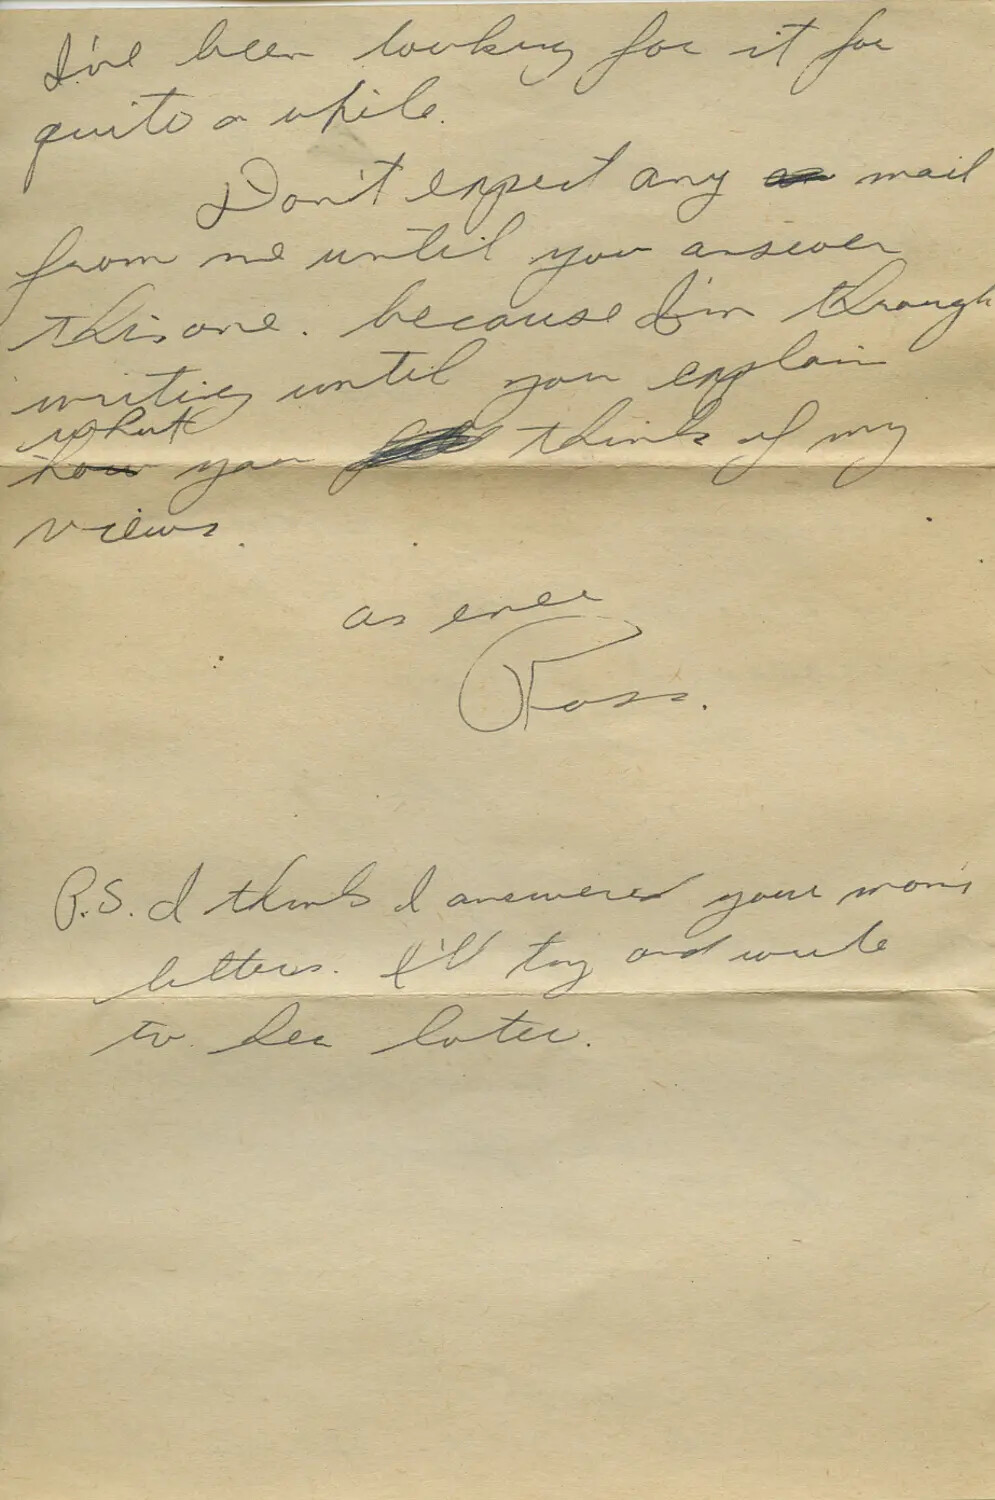 I've been looking for it for
quite a while.
Don't expect any mail
from me until you answer
this one. because I'm through
writing until you explain
what
how you think of my
views.
as ever
Ross.
P.S. I think I answered your mom's
letters. I'll try and write
to her later.